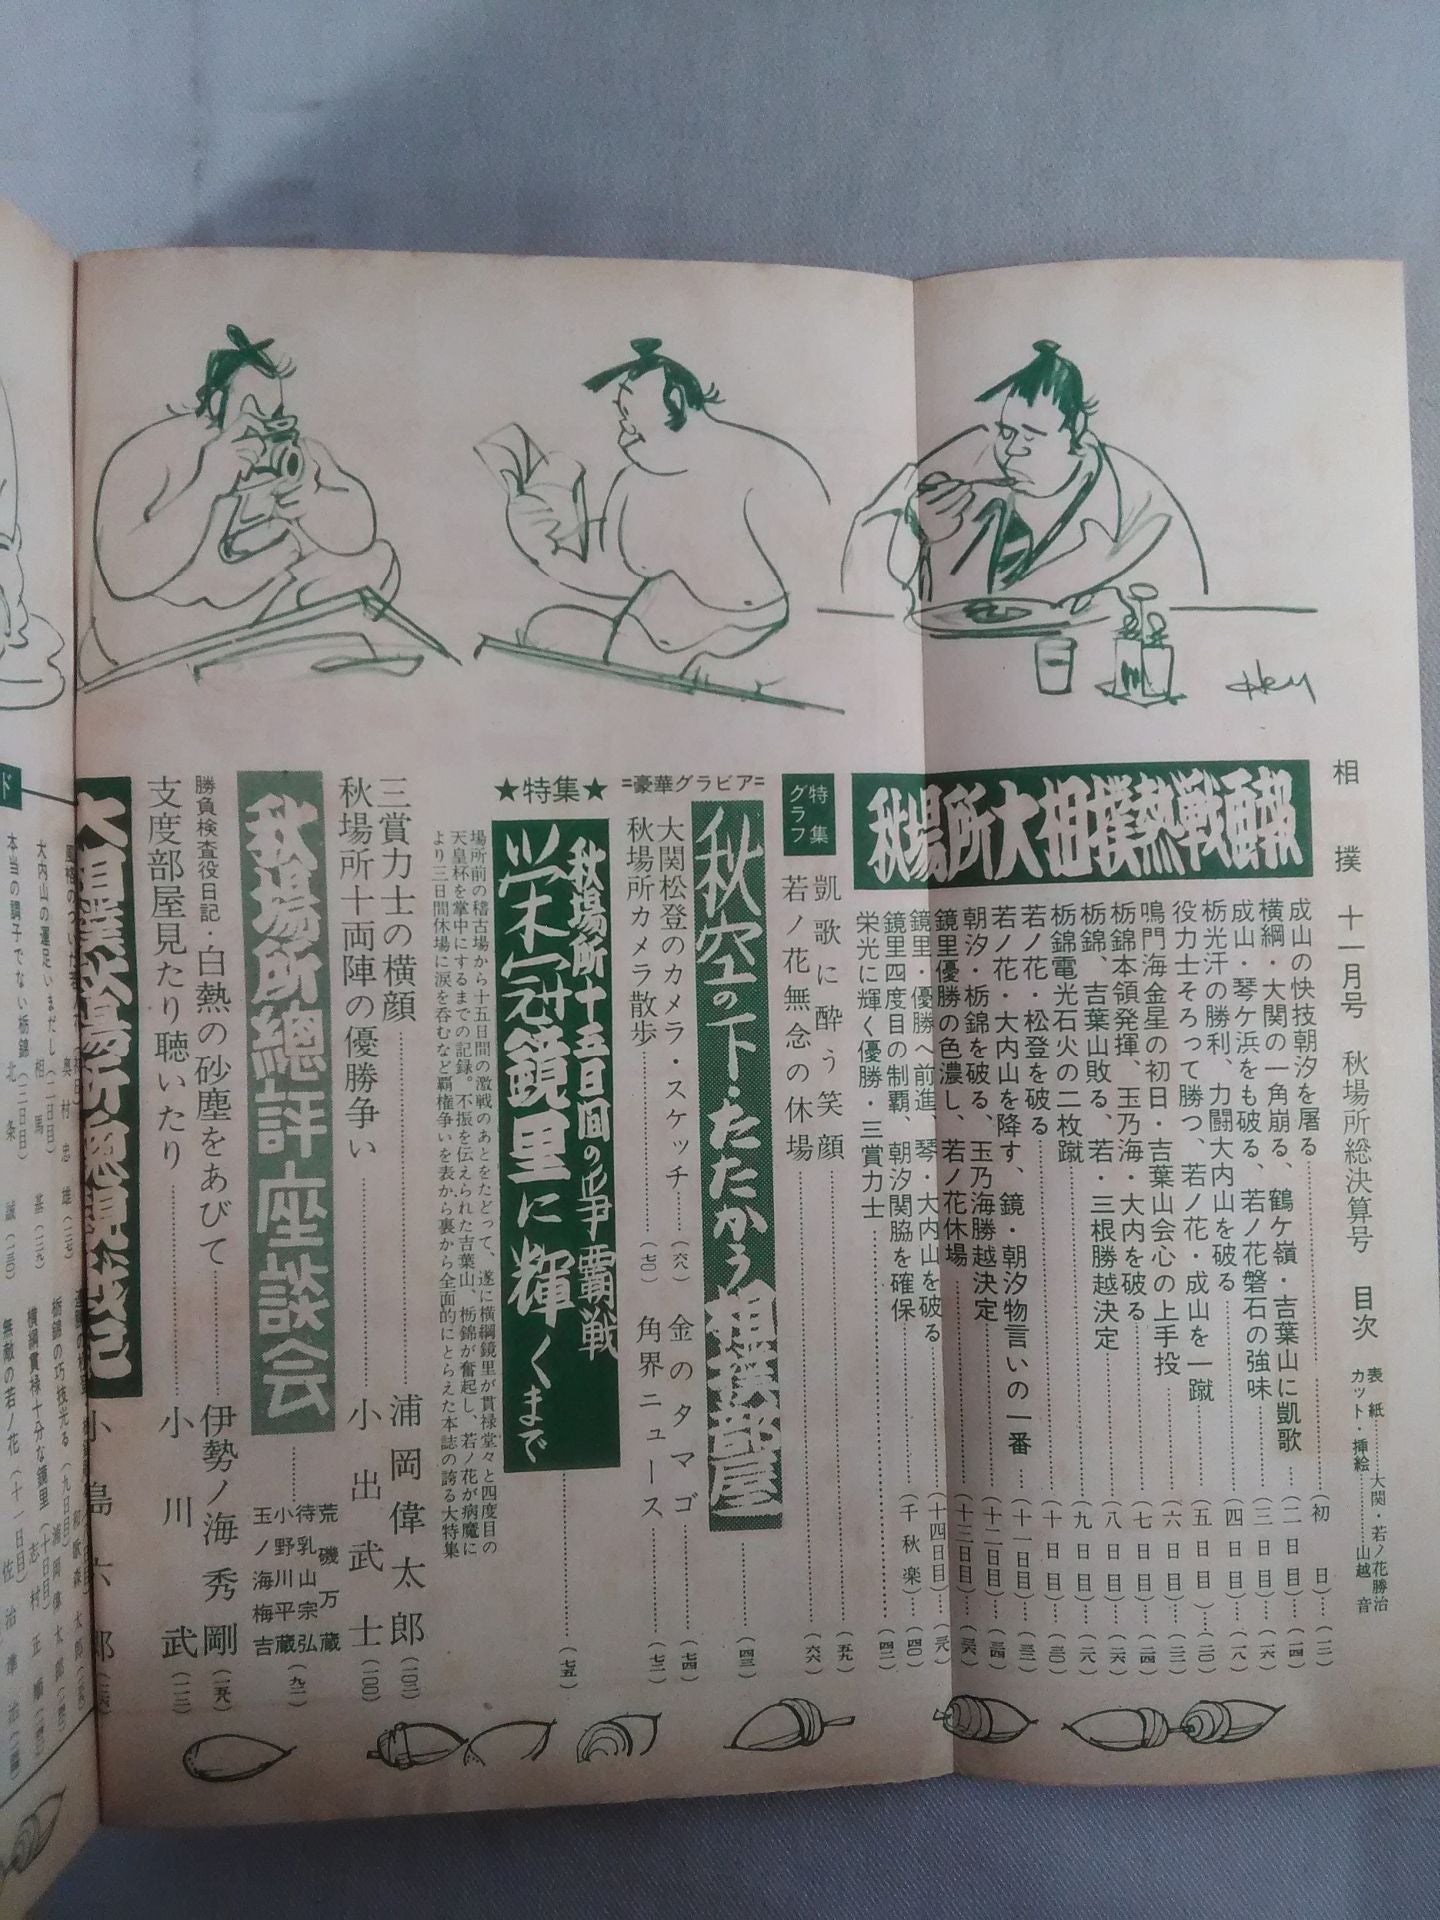 相撲 十一月号 秋場所総決算号 目次
表紙…………大関・若ノ花勝治
カット・挿絵…………山越音
秋場所大相撲熱戦画報
成山の快技朝汐を屠る…………(初日)…(一二)
横綱・大関の一角崩る、鶴ケ嶺・吉葉山に凱歌…(二日目)…(一四)
成山・琴ケ浜をも破る、若ノ花磐石の強味…………(三日目)…(一六)
栃光汗の勝利、力闘大内山を破る…………(四日目)…(一八)
役力士そろって勝つ、若ノ花・成山を一蹴…………(五日目)…(二〇)
鳴門海金星の初日・吉葉山会心の上手投…………(六日目)…(二二)
栃錦本領発揮、玉乃海・大内を破る…………(七日目)…(二四)
栃錦、吉葉山敗る、若・三根勝越決定…………(八日目)…(二六)
栃錦電光石火の二枚蹴…………(九日目)…(二八)
若ノ花・松登を破る…………(十日目)…(三〇)
若ノ花・大内山を降す、鏡・朝汐物言いの一番…(十一日目)…(三二)
朝汐・栃錦を破る、玉乃海勝越決定…………(十二日目)…(三四)
鏡里優勝の色濃し、若ノ花休場…………(十三日目)…(三六)
鏡里・優勝へ前進、琴・大内山を破る…………(十四日目)…(三八)
鏡里四度目の制覇、朝汐関脇を確保…………(千秋楽)…(四〇)
栄光に輝く優勝・三賞力士…………(四二)
特集グラフ
凱歌に酔う笑顔…………(五九)
若ノ花無念の休場…………(六六)
=豪華グラビア=
秋空の下・たたかう相撲部屋…………(四三)
大関松登のカメラ・スケッチ……(六八)
金のタマゴ…………(七四)
秋場所カメラ散歩…………(七〇)
角界ニュース…………(七二)
★特集★
秋場所十五日間の争覇戦
栄冠鏡里に輝くまで…………(七五)
場所前の稽古場から十五日間の激戦のあとをたどって、遂に横綱鏡里が貫禄堂々と四度目の
天皇杯を掌中にするまでの記録。不振を伝えられた吉葉山、栃錦が奮起し、若ノ花が病魔に
より三日間休場に涙を呑むなど覇権争いを表から裏から全面的にとらえた本誌の誇る大特集
三賞力士の横顔…………浦岡偉太郎(一〇二)
秋場所十両陣の優勝争い…………小出武士(一〇〇)
秋場所總評座談会…………
荒磯万蔵
待乳山宗弘
小野川平蔵
玉ノ海梅吉
(九二)
勝負検査役日記・白熱の砂塵をあびて…………伊勢ノ海秀剛
支度部屋見たり聴いたり…………小川武(一一二)
小島六郎
大内山の運足いまだし(二日目)
相馬基
本当の調子でない栃錦(三日目)
北条誠
栃錦の巧技光る(九日目)
浦岡偉太郎
横綱貫禄十分な鏡里(十日目)
志村正順
無敵の若ノ花(十一日目)
佐治